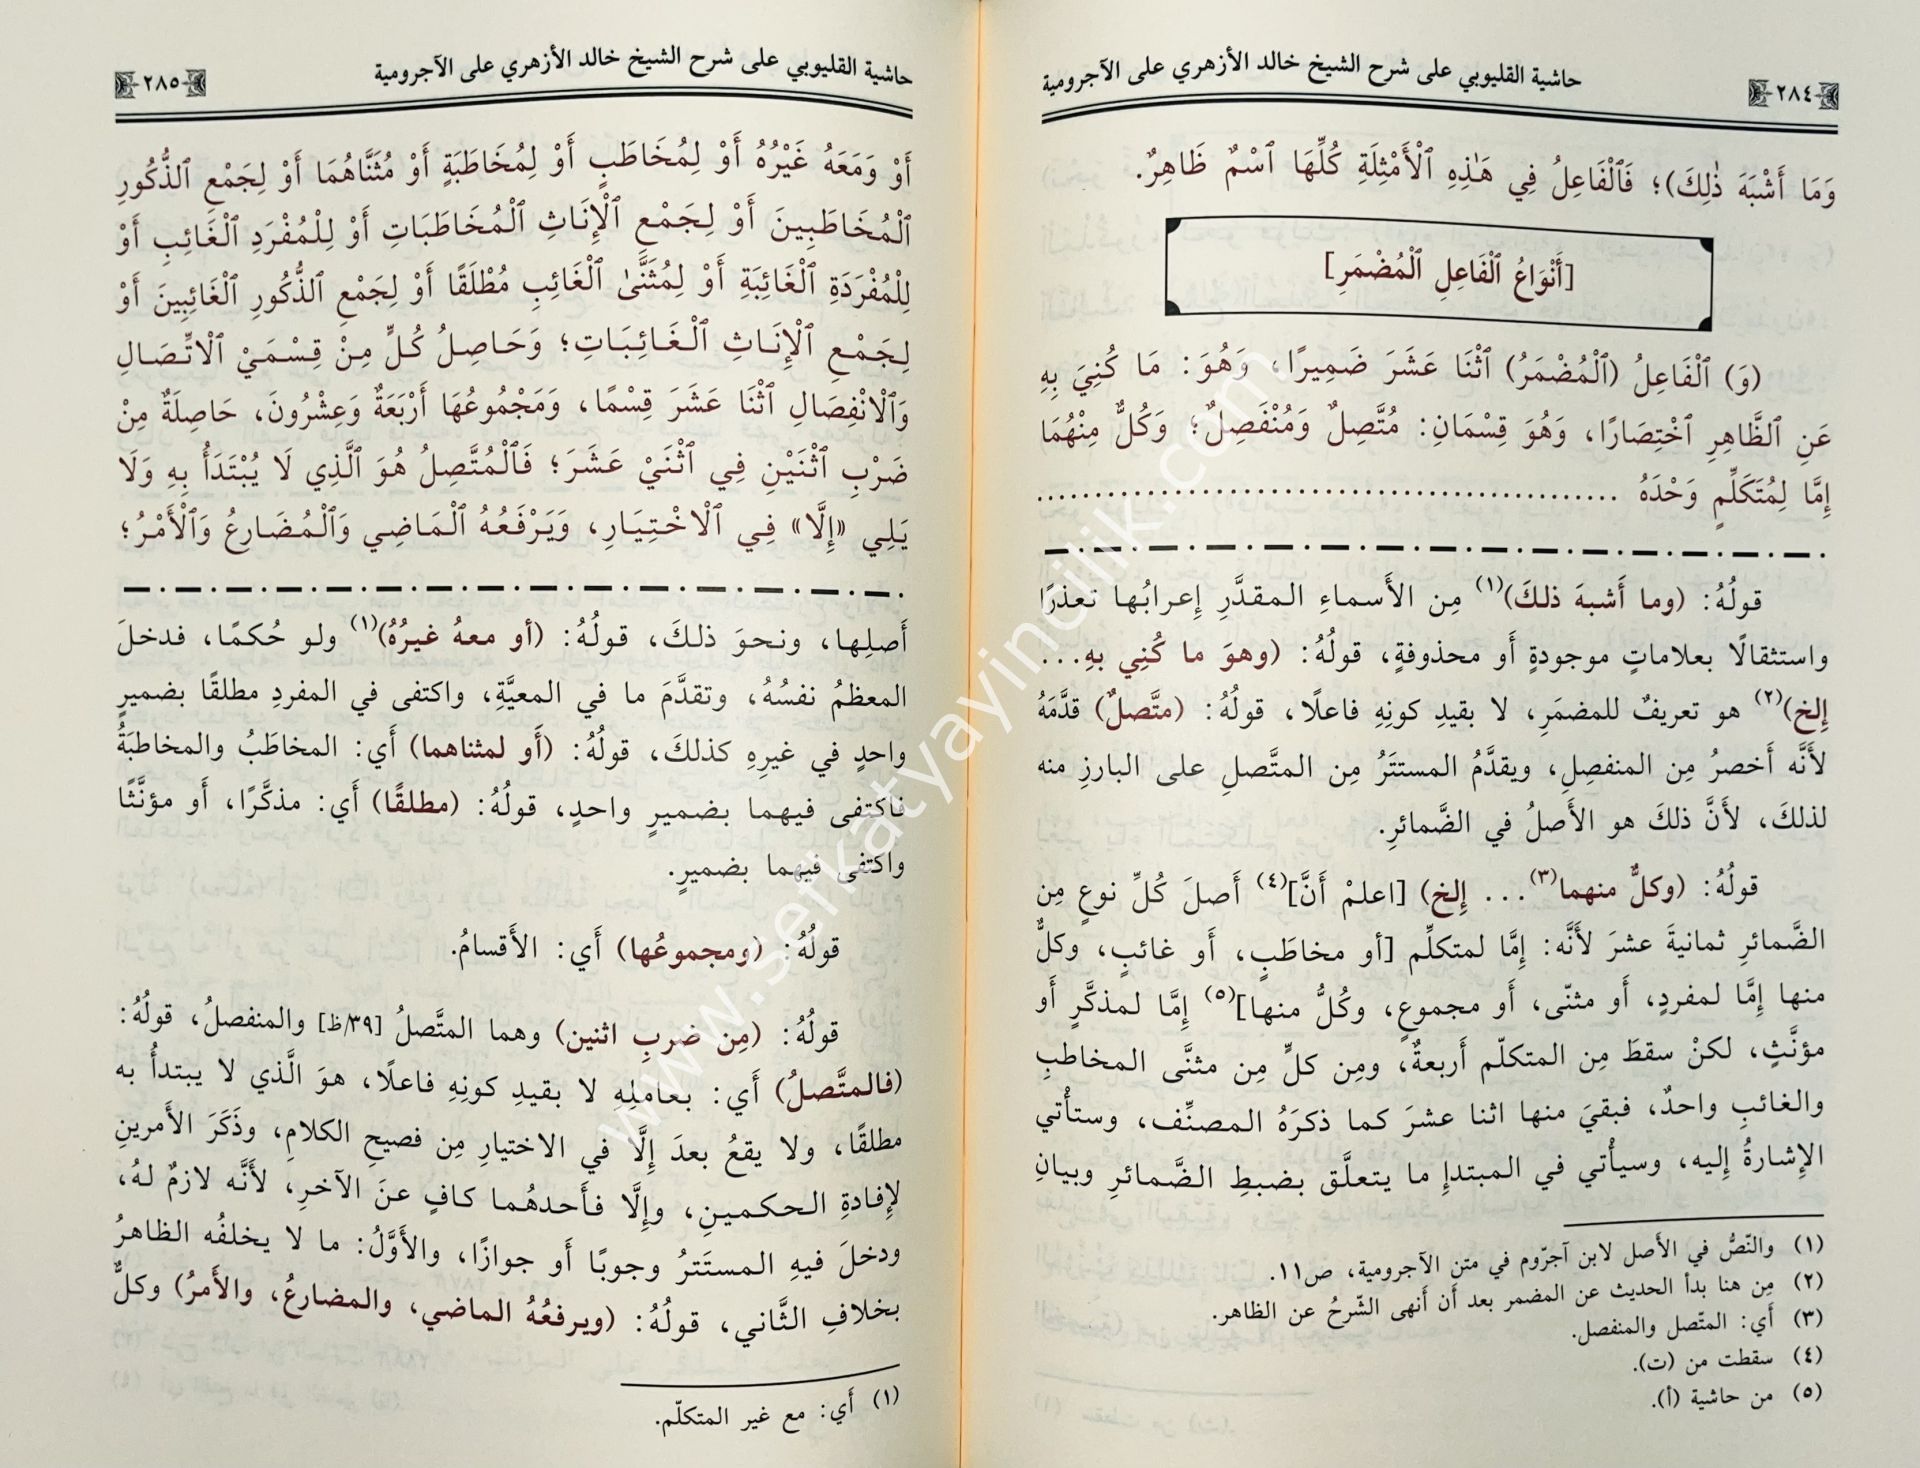 حاشية القليوبي على شرح الشيخ خالد الأزهري على الآجرومية
٢٨٤
وَمَا أَشْبَهَ ذَٰلِكَ)؛ فَٱلْفَاعِلُ فِي هَٰذِهِ ٱلْأَمْثِلَةِ كُلِّهَا ٱسْمٌ ظَاهِرٌ.
[أَنْوَاعُ ٱلْفَاعِلِ ٱلْمُضْمَرِ]
(وَ) ٱلْفَاعِلُ (ٱلْمُضْمَرُ) ٱثْنَا عَشَرَ ضَمِيرًا، وَهُوَ: مَا كُنِيَ بِهِ
عَنِ ٱلظَّاهِرِ ٱخْتِصَارًا، وَهُوَ قِسْمَانِ: مُتَّصِلٌ وَمُنْفَصِلٌ؛ وَكُلٌّ مِنْهُمَا
إِمَّا لِمُتَكَلِّمٍ وَحْدَهُ ..................................................
قولُهُ: (وما أَشبهَ ذلكَ)(١) مِن الأَسماءِ المقدَّرِ إِعرابُها تعذرًا
واستثقالًا بعلاماتٍ موجودةٍ أَو محذوفةٍ، قولُهُ: (وهوَ ما كُنِي بهِ...
إِلخ)(٢) هو تعريفٌ للمضمَرِ، لا بقيدِ كونِهِ فاعلًا، قولُهُ: (متَّصلٌ) قدَّمَهُ
لأَنَّه أَخصرُ مِن المنفصِلِ، ويقدَّمُ المستترُ مِن المتَّصلِ على البارزِ منه
لذلكَ، لأَنَّ ذلكَ هو الأَصلُ في الضَّمائرِ.
قولُهُ: (وكلٌّ منهما(٣)... إِلخ) [اعلمْ أَنَّ](٤) أَصلَ كُلِّ نوعٍ مِن
الضَّمائرِ ثمانيةَ عشرَ لأَنَّه: إِمَّا لمتكلِّم [أو مخاطَبٍ، أَو غائبٍ، وكلٌّ
منها إِمَّا لمفردٍ، أَو مثنّى، أَو مجموعٍ، وكُلُّ منها](٥) إِمَّا لمذكَّرٍ أَو
مؤنَّثٍ، لكنْ سقطَ مِن المتكلّم أَربعةٌ، ومِن كلٍّ مِن مثنَّى المخاطبِ
والغائبِ واحدٌ، فبقيَ منها اثنا عشرَ كما ذكرَهُ المصنِّف، وستأْتي
الإِشارةُ إِليه، وسيأْتي في المبتدإِ ما يتعلَّق بضبطِ الضَّمائرِ وبيانِ
(١) والنّصُّ في الأَصل لابن آجرّوم في متن الآجرومية، ص١١.
(٢) مِن هنا بدأ الحديث عن المضمر بعد أن أنهى الشّرحُ عن الظاهر.
(٣) أَي: المتّصل والمنفصل.
(٤) سقطت من (ت).
(٥) من حاشية (أ).
حاشية القليوبي على شرح الشيخ خالد الأزهري على الآجرومية
٢٨٥
أَوْ وَمَعَهُ غَيْرُهُ أَوْ لِمُخَاطَبٍ أَوْ لِمُخَاطَبَةٍ أَوْ مُثَنَّاهُمَا أَوْ لِجَمْعِ ٱلذُّكُورِ
ٱلْمُخَاطَبِينَ أَوْ لِجَمْعِ ٱلْإِنَاثِ ٱلْمُخَاطَبَاتِ أَوْ لِلْمُفْرَدِ ٱلْغَائِبِ أَوْ
لِلْمُفْرَدَةِ ٱلْغَائِبَةِ أَوْ لِمُثَنَّىٰ ٱلْغَائِبِ مُطْلَقًا أَوْ لِجَمْعِ ٱلذُّكُورِ ٱلْغَائِبِينَ أَوْ
لِجَمْعِ ٱلْإِنَاثِ ٱلْغَائِبَاتِ؛ وَحَاصِلُ كُلٍّ مِنْ قِسْمَيْ ٱلْاتِّصَالِ
وَٱلْانْفِصَالِ ٱثْنَا عَشَرَ قِسْمًا، وَمَجْمُوعُهَا أَرْبَعَةٌ وَعِشْرُونَ، حَاصِلَةٌ مِنْ
ضَرْبِ ٱثْنَيْنِ فِي ٱثْنَيْ عَشَرَ؛ فَٱلْمُتَّصِلُ هُوَ ٱلَّذِي لَا يُبْتَدَأُ بِهِ وَلَا
يَلِي «إِلَّا» فِي ٱلْاخْتِيَارِ، وَيَرْفَعُهُ ٱلْمَاضِي وَٱلْمُضَارِعُ وَٱلْأَمْرُ؛
أَصلِها، ونحوَ ذلكَ، قولُهُ: (أو معهُ غيرُهُ)(١) ولو حُكمًا، فدخلَ
المعظمُ نفسُهُ، وتقدَّمَ ما في المعيَّةِ، واكتفى في المفردِ مطلقًا بضميرٍ
واحدٍ في غيرِهِ كذلكَ، قولُهُ: (أَو لمثناهما) أَي: المخاطَبُ والمخاطبَةُ
فاكتفى فيهما بضميرٍ واحدٍ، قولُهُ: (مطلقًا) أَي: مذكَّرًا، أَو مؤنَّثًا
واكتفى فيهما بضميرٍ.
قولُهُ: (ومجموعُها) أَي: الأَقسامُ.
قولُهُ: (مِن ضربِ اثنين) وهما المتَّصلُ [٣٩/ظ] والمنفصلُ، قولُهُ:
(فالمتَّصلُ) أَي: بعاملِهِ لا بقيدِ كونِهِ فاعلًا، هوَ الَّذي لا يبتدأُ به
مطلقًا، ولا يقعُ بعدَ إِلَّا في الاختيارِ مِن فصيحِ الكلامِ، وذَكَرَ الأَمرينِ
لإِفادةِ الحكمينِ، وإِلَّا فأَحدُهُما كافٍ عنَ الآخرِ، لأَنَّه لازمٌ لهُ،
ودخلَ فيهِ المستترُ وجوبًا أَو جوازًا، والأَوَّلُ: ما لا يخلفُه الظاهرُ
بخلافِ الثَّاني، قولُهُ: (ويرفعُهُ الماضي، والمضارعُ، والأَمرُ) وكلٌّ
(١) أَي: مع غير المتكلّم.
www.sefkatyayindilik.com